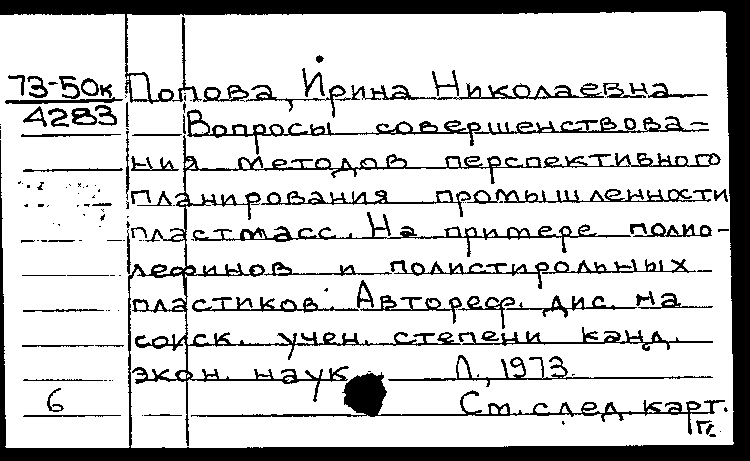 73-50к Попова, Ирина Николаевна
4283 Вопросы совершенствова=
ния методов перспективного
планирования промышленности
пластмасс. На примере полио-
лефинов и полистирольных
пластиков. Автореф. дис. на
соиск. учен. степени канд.
экон. наук. Л., 1973.
6 См. след. карт.